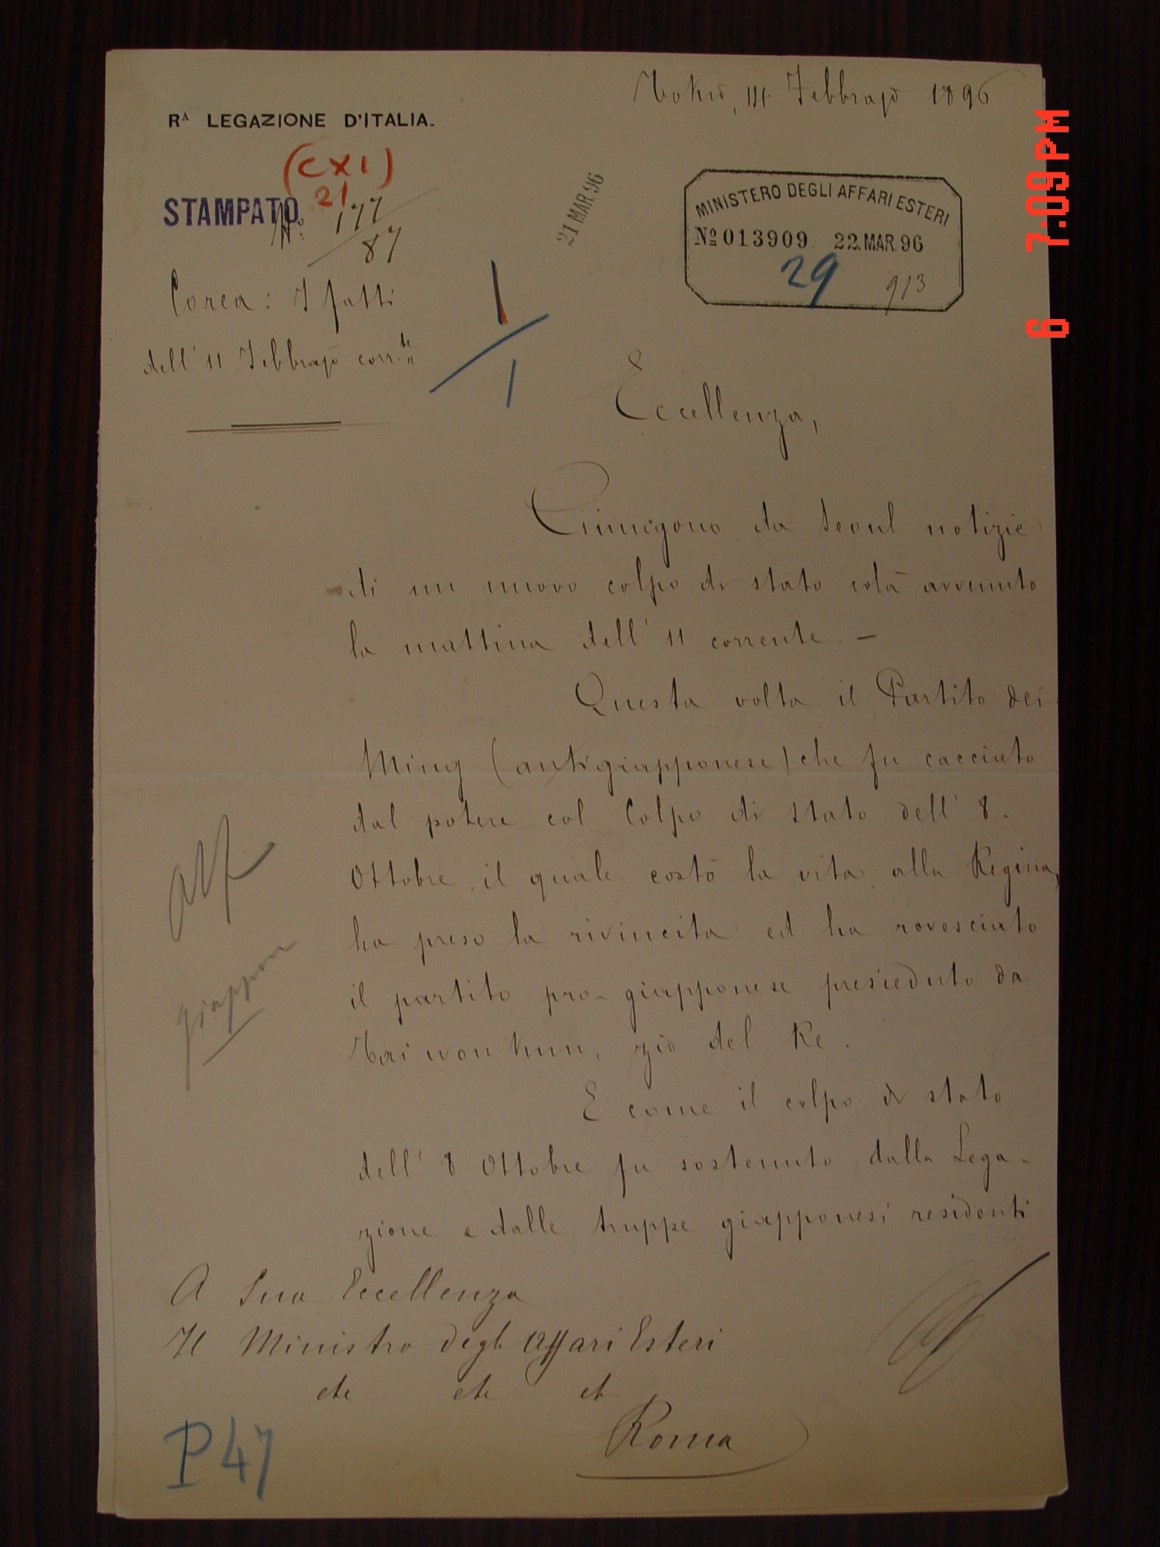 Tokio, 14 Febbrajo 1896
Rᴬ LEGAZIONE D'ITALIA.
(CXI)
21
STAMPATO
N.° 177
87
21 MAR 96
MINISTERO DEGLI AFFARI ESTERI
Nº 013909 22. MAR 96
29 913
Corea: I fatti
dell' 11 Febbrajo corr.te
1
1
Eccellenza,
Giungono da Seoul notizie
di un nuovo colpo di stato colà avvenuto
la mattina dell' 11 corrente. —
Questa volta il Partito dei
Ming (antigiapponese) che fu cacciato
dal potere col Colpo di stato dell' 8.
Ottobre, il quale costò la vita alla Regina,
ha preso la rivincita ed ha rovesciato
il partito pro-giapponese presieduto da
Tai won Kun, zio del Re.
E come il colpo di stato
dell' 8 Ottobre fu sostenuto dalla Lega-
zione e dalle truppe giapponesi residenti
giappon
A Sua Eccellenza
Il Ministro degli Affari Esteri
etc etc etc
Roma
P 47
6 7:09 PM